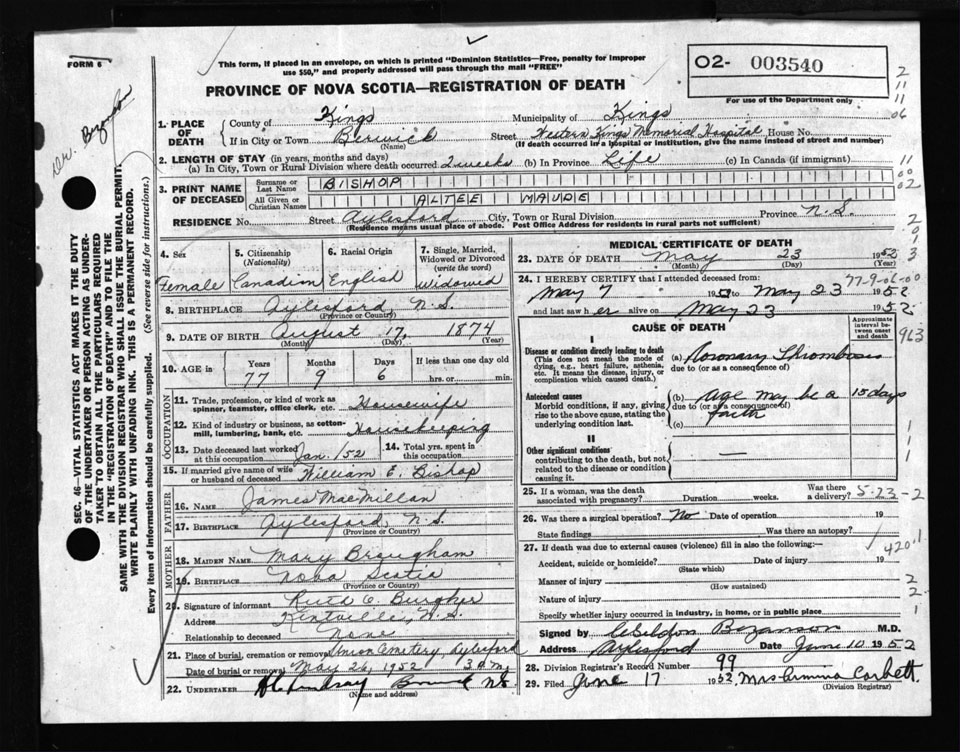 FORM 6
This form, if placed in an envelope, on which is printed "Dominion Statistics—Free, penalty for improper
use $50," and properly addressed will pass through the mail "FREE"
O2- 003540
PROVINCE OF NOVA SCOTIA—REGISTRATION OF DEATH
For use of the Department only
Dr. Bezanson
SEC. 46—VITAL STATISTICS ACT MAKES IT THE DUTY
OF THE UNDERTAKER OR PERSON ACTING AS UNDER-
TAKER TO OBTAIN ALL THE PARTICULARS REQUIRED
IN THE "REGISTRATION OF DEATH" AND TO FILE THE
SAME WITH THE DIVISION REGISTRAR WHO SHALL ISSUE THE BURIAL PERMIT.
WRITE PLAINLY WITH UNFADING INK. THIS IS A PERMANENT RECORD.
Every item of information should be carefully supplied. (See reverse side for instructions.)
1. PLACE OF DEATH
County of Kings Municipality of Kings
If in City or Town Berwick Street Western Kings Memorial Hospital House No.
(Name) (If death occurred in a hospital or institution, give the name instead of street and number)
2. LENGTH OF STAY (in years, months and days)
(a) In City, Town or Rural Division where death occurred 2 weeks (b) In Province Life (c) In Canada (if immigrant)
3. PRINT NAME OF DECEASED
Surname or Last Name BISHOP
All Given or Christian Names ALTEE MAUDE
RESIDENCE No. Street Aylesford City, Town or Rural Division Province N.S.
(Residence means usual place of abode. Post Office Address for residents in rural parts not sufficient)
4. Sex
Female
5. Citizenship (Nationality)
Canadian
6. Racial Origin
English
7. Single, Married, Widowed or Divorced (write the word)
Widowed
8. BIRTHPLACE Aylesford N.S.
(Province or Country)
9. DATE OF BIRTH August 17, 1874
(Month) (Day) (Year)
10. AGE in Years Months Days If less than one day old
77 9 6 hrs. or min.
OCCUPATION
11. Trade, profession, or kind of work as
spinner, teamster, office clerk, etc. Housewife
12. Kind of industry or business, as cotton-
mill, lumbering, bank, etc. Housekeeping
13. Date deceased last worked at this occupation Jan. 1952
14. Total yrs. spent in this occupation
15. If married give name of wife or husband of deceased William E. Bishop
FATHER
16. NAME James MacMillan
17. BIRTHPLACE Aylesford, N.S.
(Province or Country)
MOTHER
18. MAIDEN NAME Mary Brougham
19. BIRTHPLACE Nova Scotia
(Province or Country)
20. Signature of informant Ruth C. Burgher
Address Kentville, N.S.
Relationship to deceased None
21. Place of burial, cremation or removal Union Cemetery, Aylesford
Date of burial or removal May 26, 1952
22. UNDERTAKER Lindsay Berwick N.S.
(Name and address)
MEDICAL CERTIFICATE OF DEATH
23. DATE OF DEATH May 23 1952
(Month) (Day) (Year)
24. I HEREBY CERTIFY that I attended deceased from:
77-9-06-00
May 7 195 to May 23 1952
and last saw her alive on May 23 1952
CAUSE OF DEATH
Approximate interval between onset and death
963
I
Disease or condition directly leading to death
(This does not mean the mode of
dying, e.g., heart failure, asthenia,
etc. It means the disease, injury, or
complication which caused death.)
(a) Coronary Thrombosis
due to (or as a consequence of)
Antecedent causes
Morbid conditions, if any, giving
rise to the above cause, stating the
underlying condition last.
(b) Age may be a 15 days
due to (or as a consequence of)
factor
(c)
II
Other significant conditions
contributing to the death, but not
related to the disease or condition
causing it.
25. If a woman, was the death associated with pregnancy? Duration weeks. Was there a delivery? 5-23-2
26. Was there a surgical operation? No Date of operation 19
State findings Was there an autopsy?
420.1
27. If death was due to external causes (violence) fill in also the following:
Accident, suicide or homicide? Date of injury 19
(State which)
Manner of injury
(How sustained)
Nature of injury
Specify whether injury occurred in industry, in home, or in public place
Signed by Bezanson M.D.
Address Aylesford Date June 10 1952
28. Division Registrar's Record Number 99
29. Filed June 17 1952, Mrs Armina Corbett.
(Division Registrar)